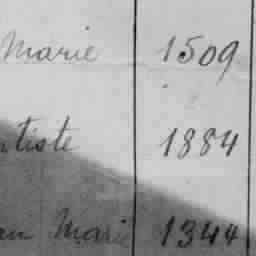 Marie 1509
tiste 1884
an Marie 1344